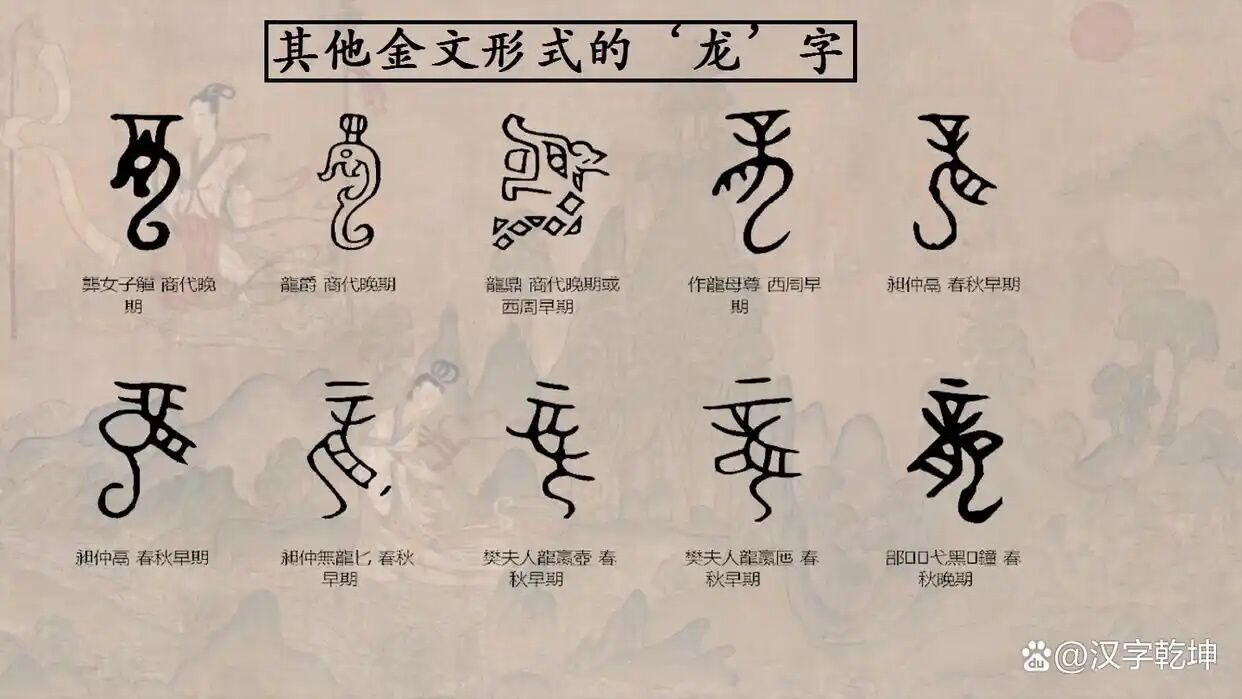 其他金文形式的‘龙’字
龏女子觚 商代晚
期
龍爵 商代晚期
龍鼎 商代晚期或
西周早期
作龍母尊 西周早
期
昶仲鬲 春秋早期
昶仲鬲 春秋早期
昶仲無龍匕 春秋
早期
樊夫人龍嬴壺 春
秋早期
樊夫人龍嬴匜 春
秋早期
郘弋黑鐘 春
秋晚期
@汉字乾坤